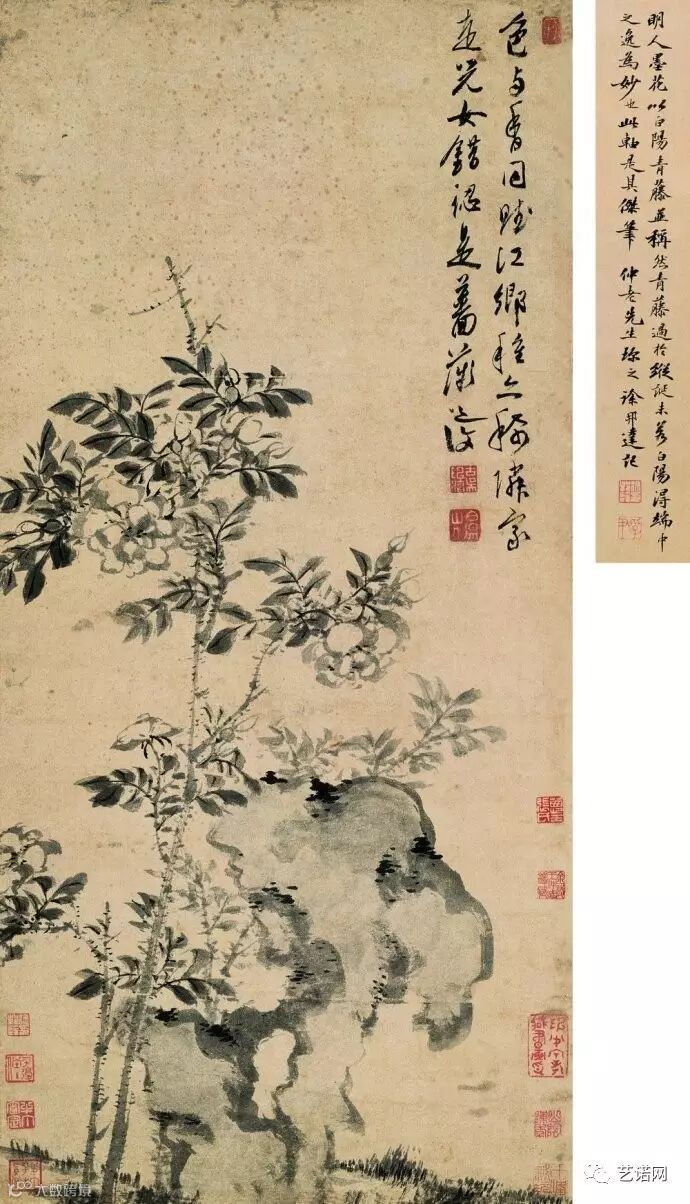 明人墨花以白陽青藤並稱然青藤過於縱誕未若白陽得端中
之逸為妙也此軸是其傑筆 仲老先生珍之徐邦達記
色与香同賦江鄉種亦稀隣家
走児女錯認是薔薇 道復
艺诺网
大数跨境